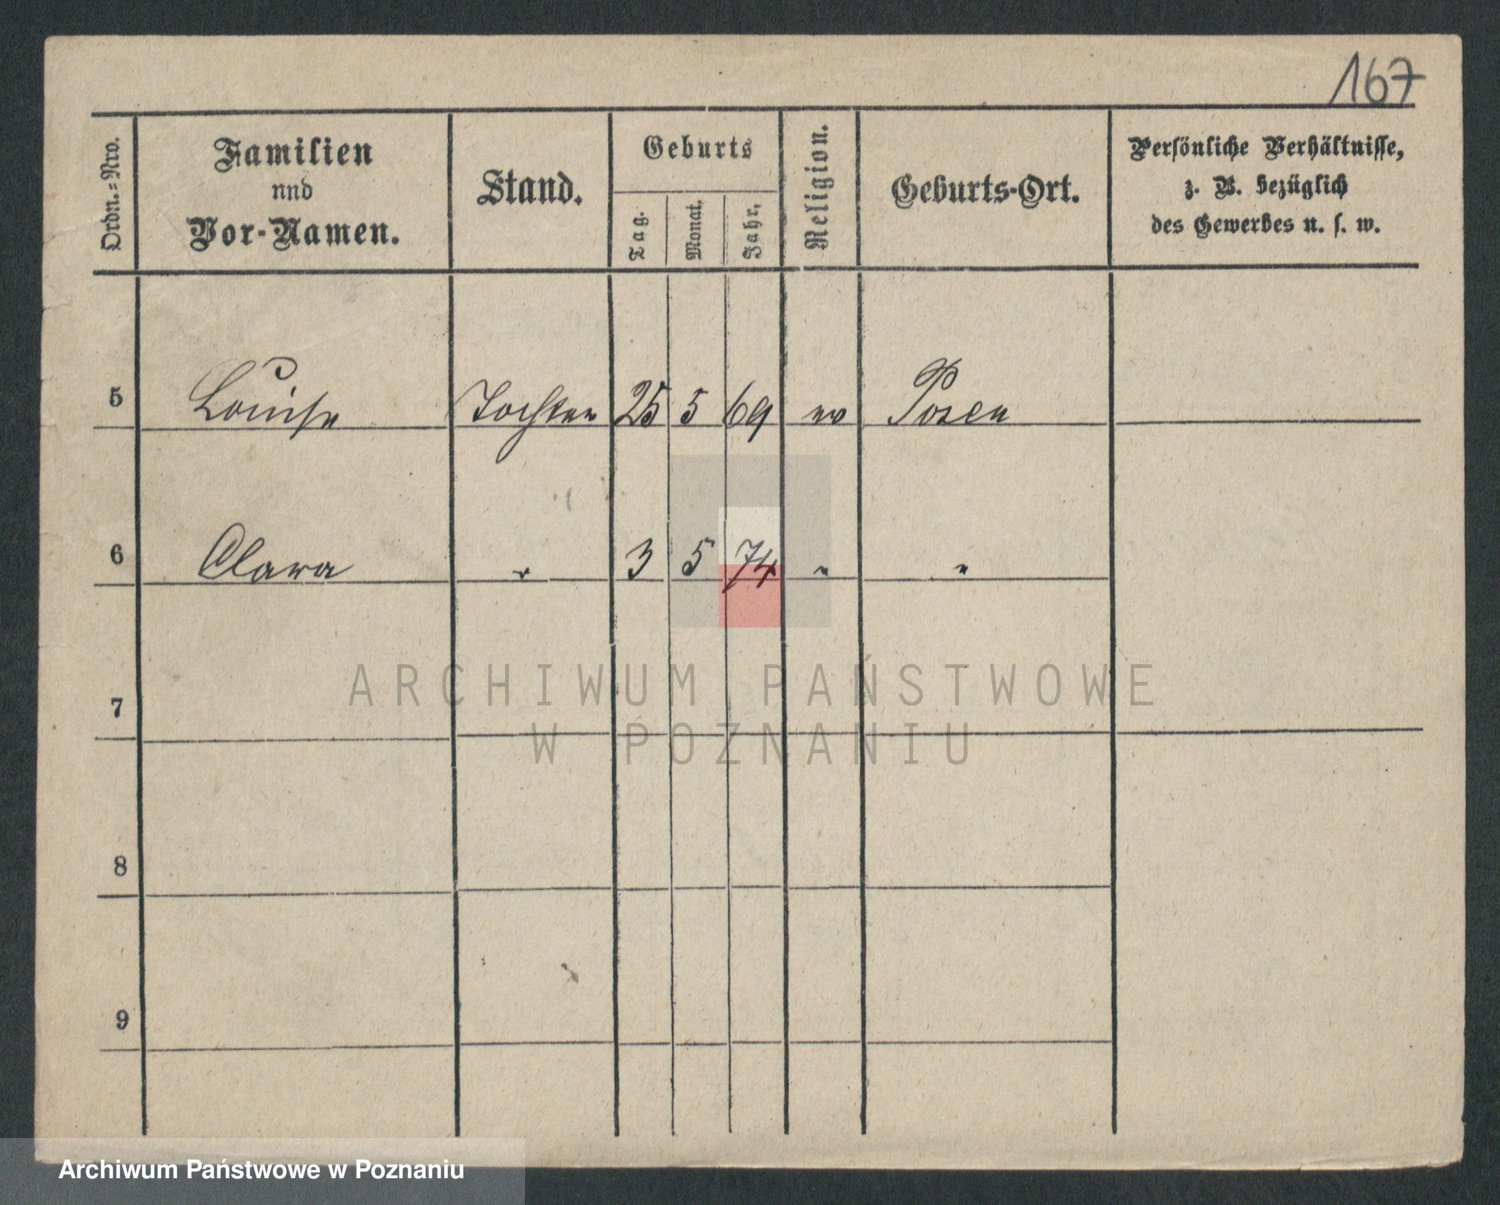 167
Ordn.=Nro.
Familien
nnd
Vor-Namen.
Stand.
Geburts
Tag.
Monat.
Jahr,
Religion.
Geburts-Ort.
Persönliche Verhältnisse,
z. B. bezüglich
des Gewerbes u. s. w.
5 Louise Tochter 25 5 69 ev Posen
6 Clara " 3 5 74 " "
7
8
9
ARCHIWUM PAŃSTWOWE
W POZNANIU
Archiwum Państwowe w Poznaniu